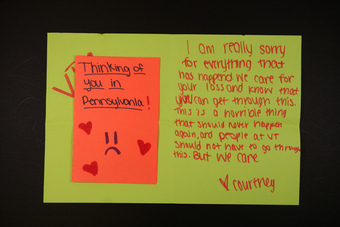 VT
Thinking of
you in
Pennsylvania!
I am really sorry
for everything that
has happend. We care for
your loss and know that
you can get through this.
This is a horrible thing
that should never happen
again, and people at VT
should not have to go through
this. But we care
courtney